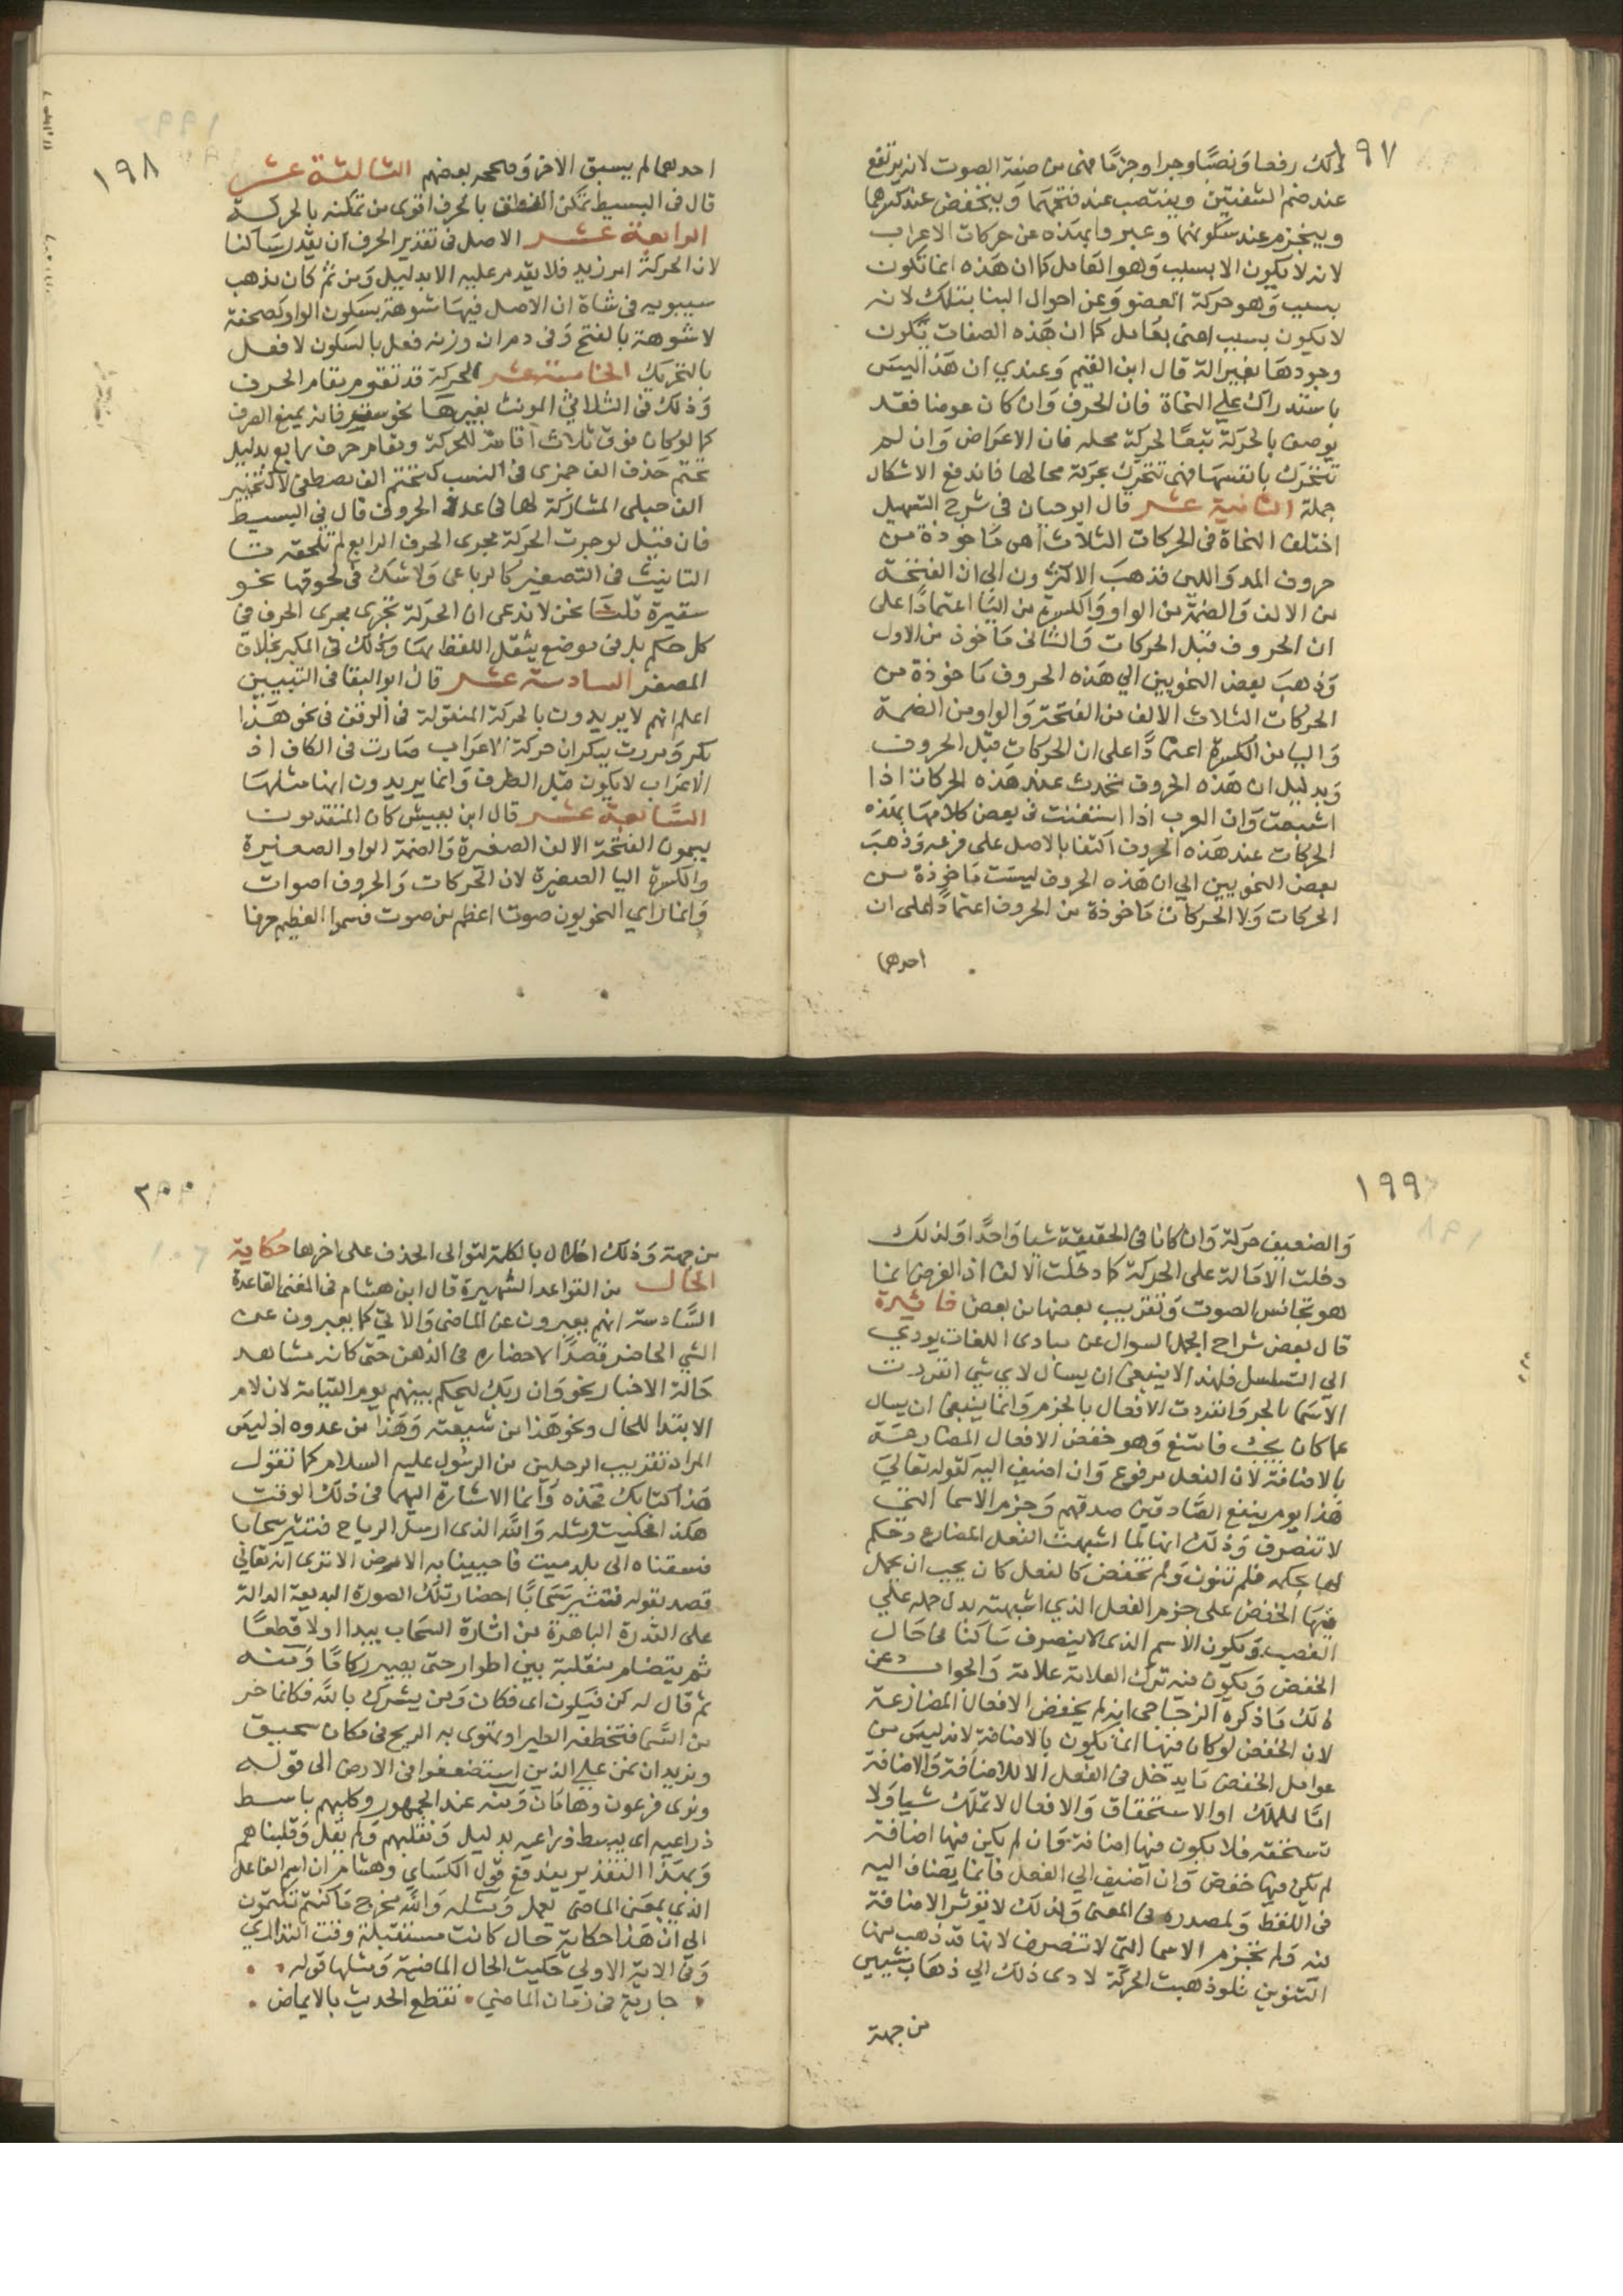 ١٩٧
ذلك رفعا ونصبا وجرا وجزما فهى من صفة الصوت لانه يرتفع
عند ضم الشفتين وينتصب عند فتحهما وينخفض عند كسرهما
وينجزم عند سكونهما وعبروا بهذه عن حركات الاعراب
لانه لا يكون الا بسبب وهو العامل كما ان هذه انما تكون
بسبب وهو حركة العضو وعن احوال البنا بتلك لانه
لا يكون بسبب اعنى بعامل كما ان هذه الصفات تكون
وجودها بغير الة قال ابن القيم وعندي ان هذا ليس
باستدراك علي النحاة فان الحرف وان كان عرضا فقد
يوصف بالحركة تبعا لحركة محله فان الاعراض وان لم
تتحرك بانفسها فهى تتحرك بحركة محالها فاندفع الاشكال
جملة الثانية عشر قال ابو حيان فى شرح التسهيل
اختلف النحاة فى الحركات الثلاث اهى ماخوذة من
حروف المد واللين فذهب الاكثرون الى ان الفتحة
من الالف والضمة من الواو والكسرة من اليا اعتمادا على
ان الحروف قبل الحركات والثانى ماخوذ من الاول
وذهب بعض النحويين الي هذه الحروف ماخوذة من
الحركات الثلاث الالف من الفتحة والواو من الضمة
واليا من الكسرة اعتمادا على ان الحركات قبل الحروف
وبدليل ان هذه الحروف تحدث عند هذه الحركات اذا
اشبعت وان العرب اذا استغنت فى بعض كلامها بهذه
الحركات عند هذه الحروف اكتفا بالاصل على فرعه وذهب
بعض النحويين الي ان هذه الحروف ليست ماخوذة من
الحركات ولا الحركات ماخوذة من الحروف اعتمادا على ان
احدهما
١٩٨
احدهما لم يسبق الاخر وصححه بعضهم الثالثة عشر
قال فى البسيط تمكن النطق بالحرف اقوى من تمكنه بالحركة
الرابعة عشر الاصل فى تقدير الحرف ان يقدر ساكنا
لان الحركة امر زايد فلا يقدم عليه الا بدليل ومن ثم كان مذهب
سيبويه فى شاة ان الاصل فيها شوهة بسكون الواو كصحفة
لا شوهة بالفتح وفى دم ان وزنه فعل بالسكون لا فعل
بالتحريك الخامسة عشر الحركة قد تقوم مقام الحرف
وذلك فى الثلاثي المونث بغيرها نحو سقر فانه يمنع الصرف
كما لو كان فوق ثلاث اقامة للحركة مقام حرف رابع بدليل
تحتم حذف الف جمزى فى النسب كتحتم الف مصطفى لا كتخيير
الف حبلى المشاركة لها فى عدة الحروف قال فى البسيط
فان قيل لو جرت الحركة مجرى الحرف الرابع لم تلحقه تا
التانيث فى التصغير كالرباعى ولا شك فى لحوقها نحو
سقيرة قلنا نحن لا ندعى ان الحركة تجرى مجرى الحرف فى
كل حكم بل فى موضع يثقل اللفظ بها وذلك فى المكبر بخلاف
المصغر السادسة عشر قال ابو البقا فى التبيين
اعلم انهم لا يريدون بالحركة المنقولة فى الوقف فى نحو هذا
بكر ومررت ببكر ان حركة الاعراب صارت فى الكاف اذ
الاعراب لا يكون قبل الطرف وانما يريدون انها مثلها
السابعة عشر قال ابن يعيش كان المتقدمون
يسمون الفتحة الالف الصغيرة والضمة الواو الصغيرة
والكسرة اليا الصغيرة لان الحركات والحروف اصوات
وانما راي النحويون صوتا اعظم من صوت فسموا العظيم حرفا
١٩٩
والضعيف حركة وان كانا فى الحقيقة شيا واحدا ولذلك
دخلت الامالة على الحركة كما دخلت الالف اذ الغرض انما
هو تجانس الصوت وتقريب بعضها من بعض فائدة
قال بعض شراح الجمل السوال عن مبادى اللغات يودي
الي التسلسل فلهذا لا ينبغى ان يسال لاي شي انفردت
الاسما بالجر وانفردت الافعال بالجزم وانما ينبغى ان يسال
عما كان يجب فامتنع وهو خفض الافعال المضارعة
بالاضافة لان الفعل مرفوع وان اضيف اليه كقوله تعالي
هذا يوم ينفع الصادقين صدقهم وجزم الاسما التى
لا تنصرف وذلك انها لما اشبهت الفعل المضارع وحكم
لها بحكمه فلم تنون ولم تخفض كالفعل كان يجب ان يحمل
فيها الخفض على جزم الفعل الذي اشبهته بدل حمله على
النصب ويكون الاسم الذى لا ينصرف ساكنا فى حال
الخفض ويكون فيه ترك العلامة علامة والجواب عن
ذلك ما ذكره الزجاجى انه لم يخفض الافعال المضارعة
لان الخفض لو كان فيها انما يكون بالاضافة لانه ليس من
عوامل الخفض ما يدخل فى الفعل الا للاضافة والاضافة
اما للملك او الاستحقاق والافعال لا تملك شيا ولا
تستحقه فلا يكون فيها اضافة وان لم يكن فيها اضافة
لم يكن فيها خفض وان اضيف الي الفعل فانما يضاف اليه
فى اللفظ ولمصدره فى المعنى ولذلك لا تؤثر الاضافة
فيه ولم تجزم الاسما التى لا تنصرف لانها قد ذهب منها
التنوين فلو ذهبت الحركة لادى ذلك الي ذهاب شيئين
من جهة
٢٠٠
من جهة وذلك اخلال بالكلمة لتوالى الحذف على اخرها حكاية
الحال من القواعد الشهيرة قال ابن هشام فى المغنى القاعدة
السادسة انهم يعبرون عن الماضى والاتي كما يعبرون عن
الشي الحاضر قصدا لاحضاره فى الذهن حتى كانه مشاهد
حالة الاخبار نحو وان ربك ليحكم بينهم يوم القيامة لان لام
الابتدا للحال ونحو هذا من شيعته وهذا من عدوه اذ ليس
المراد تقريب الرجلين من الرسول عليه السلام كما تقول
هذا كتابك فخذه وانما الاشارة اليهما فى ذلك الوقت
هكذا فحكيت ومثله والله الذى ارسل الرياح فتثير سحابا
فسقناه الى بلد ميت فاحيينا به الارض الا ترى انه تعالي
قصد بقوله فتثير سحابا احضار تلك الصورة البديعة الدالة
على القدرة الباهرة من اثارة السحاب يبدا اولا قطعا
ثم يتضام منقلبة بين اطوار حتى يصير ركاما ومنه
ثم قال له كن فيكون اى فكان ومن يشرك بالله فكانما خر
من السما فتخطفه الطير او تهوى به الريح فى مكان سحيق
ونريد ان نمن على الذين استضعفوا فى الارض الى قوله
ونرى فرعون وهامان ومنه عند الجمهور وكلبهم باسط
ذراعيه اى يبسط ذراعيه بدليل ونقلبهم ولم يقل وقلبناهم
وبهذا التقدير يندفع قول الكساي وهشام ان اسم الفاعل
الذي بمعنى الماضى يعمل ومثله والله مخرج ما كنتم تكتمون
الى ان هذا حكاية حال كانت مستقبلة وقت التدارى
وفى الاية الاولي حكيت الحال الماضية ومثلها قوله
جارية فى زمان الماضي • تقطع الحديث بالايماض •